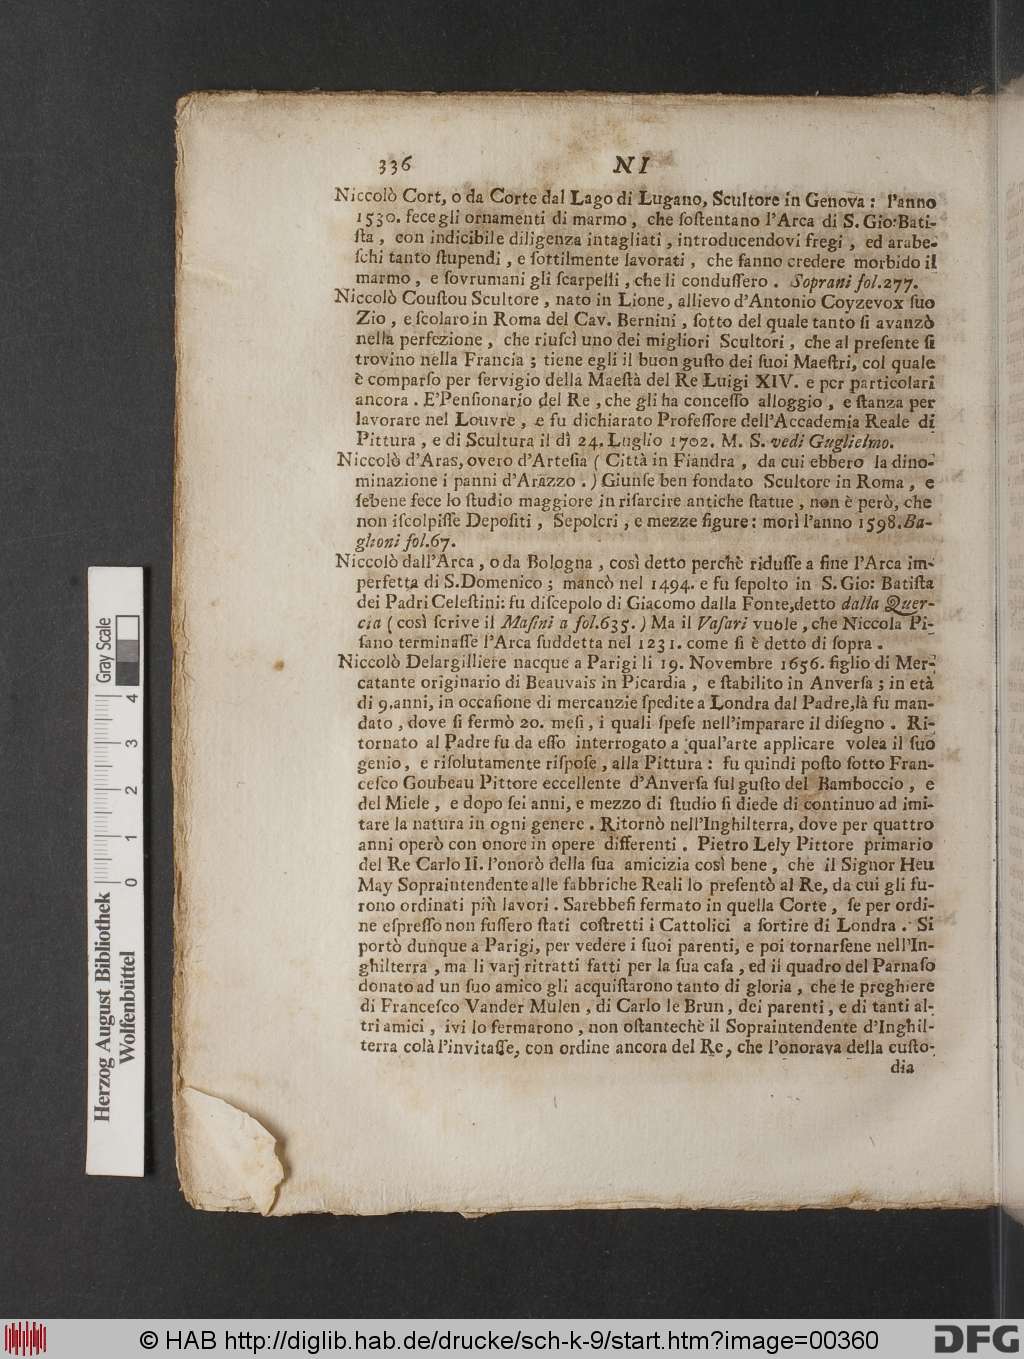 336 NI
Niccolò Cort, o da Corte dal Lago di Lugano, Scultore in Genova: l'anno
1530. fece gli ornamenti di marmo, che ſoſtentano l'Arca di S. Gio: Bati-
ſta, con indicibile diligenza intagliati, introducendovi fregi, ed arabe-
ſchi tanto ſtupendi, e ſottilmente lavorati, che fanno credere morbido il
marmo, e ſovrumani gli ſcarpelli, che li conduſſero. Soprani fol.277.
Niccolò Couſtou Scultore, nato in Lione, allievo d'Antonio Coyzevox ſuo
Zio, e ſcolaro in Roma del Cav. Bernini, ſotto del quale tanto ſi avanzò
nella perfezione, che riuſcì uno dei migliori Scultori, che al preſente ſi
trovino nella Francia; tiene egli il buon guſto dei ſuoi Maeſtri, col quale
è comparſo per ſervigio della Maeſtà del Re Luigi XIV. e per particolari
ancora. E'Penſionario del Re, che gli ha conceſſo alloggio, e ſtanza per
lavorare nel Louvre, e fu dichiarato Profeſſore dell'Accademia Reale di
Pittura, e di Scultura il dì 24. Luglio 1702. M. S. vedi Guglielmo.
Niccolò d'Aras, overo d'Arteſia (Città in Fiandra, da cui ebbero la dino-
minazione i panni d'Arazzo.) Giunſe ben fondato Scultore in Roma, e
ſebene fece lo ſtudio maggiore in riſarcire antiche ſtatue, non è però, che
non iſcolpiſſe Depoſiti, Sepolcri, e mezze figure: morì l'anno 1598. Ba-
glioni fol.67.
Niccolò dall'Arca, o da Bologna, così detto perchè riduſſe a fine l'Arca im-
perfetta di S. Domenico; mancò nel 1494. e fu ſepolto in S. Gio: Batiſta
dei Padri Celeſtini: fu diſcepolo di Giacomo dalla Fonte, detto dalla Quer-
cia (così ſcrive il Maſini a fol.635.) Ma il Vaſari vuole, che Niccola Pi-
ſano terminaſſe l'Arca ſuddetta nel 1231. come ſi è detto di ſopra.
Niccolò Delargilliere nacque a Parigi li 19. Novembre 1656. figlio di Mer-
catante originario di Beauvais in Picardia, e ſtabilito in Anverſa; in età
di 9. anni, in occaſione di mercanzie ſpedite a Londra dal Padre, là fu man-
dato, dove ſi fermò 20. meſi, i quali ſpeſe nell'imparare il diſegno. Ri-
tornato al Padre fu da eſſo interrogato a qual'arte applicare volea il ſuo
genio, e riſolutamente riſpoſe, alla Pittura: fu quindi poſto ſotto Fran-
ceſco Goubeau Pittore eccellente d'Anverſa ſul guſto del Bamboccio, e
del Miele, e dopo ſei anni, e mezzo di ſtudio ſi diede di continuo ad imi-
tare la natura in ogni genere. Ritornò nell'Inghilterra, dove per quattro
anni operò con onore in opere differenti. Pietro Lely Pittore primario
del Re Carlo II. l'onorò della ſua amicizia così bene, che il Signor Heu
May Sopraintendente alle fabbriche Reali lo preſentò al Re, da cui gli fu-
rono ordinati più lavori. Sarebbeſi fermato in quella Corte, ſe per ordi-
ne eſpreſſo non fuſſero ſtati coſtretti i Cattolici a ſortire di Londra. Si
portò dunque a Parigi, per vedere i ſuoi parenti, e poi tornarſene nell'In-
ghilterra, ma li varj ritratti fatti per la ſua caſa, ed il quadro del Parnaſo
donato ad un ſuo amico gli acquiſtarono tanto di gloria, che le preghiere
di Franceſco Vander Mulen, di Carlo le Brun, dei parenti, e di tanti al-
tri amici, ivi lo fermarono, non oſtantechè il Sopraintendente d'Inghil-
terra colà l'invitaſſe, con ordine ancora del Re, che l'onorava della cuſto-
dia
Herzog August Bibliothek
Wolfenbüttel
0 1 2 3 4
Gray Scale
© HAB http://diglib.hab.de/drucke/sch-k-9/start.htm?image=00360
DFG